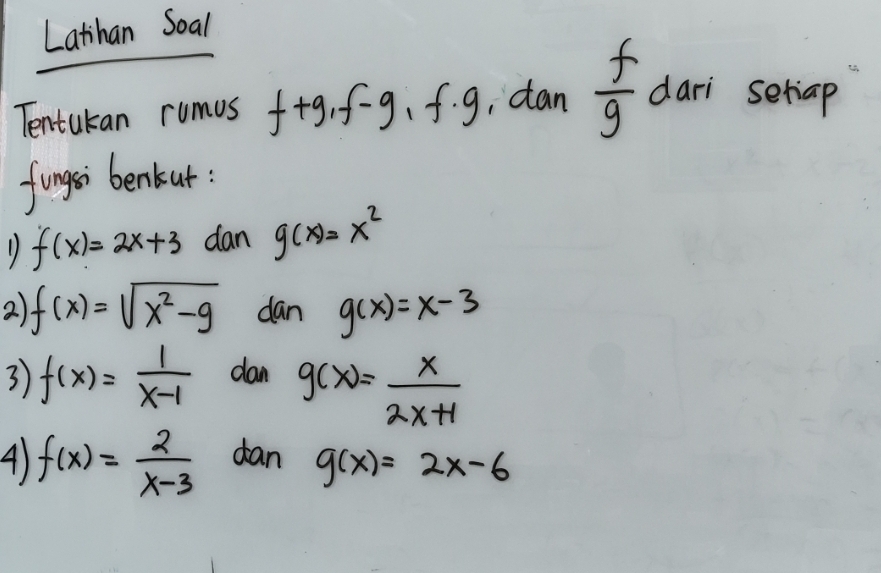 Latihan Soal
Tentukan rumus f+g, f-g, f·g, dan f/g dari setiap
fungsi berikut:
1) f(x)= 2x+3 dan g(x)= x²
2) f(x)= √(x²-9) dan g(x)= x-3
3) f(x)= 1/(x-1) dan g(x)= x/(2x+1)
4) f(x)= 2/(x-3) dan g(x)= 2x-6